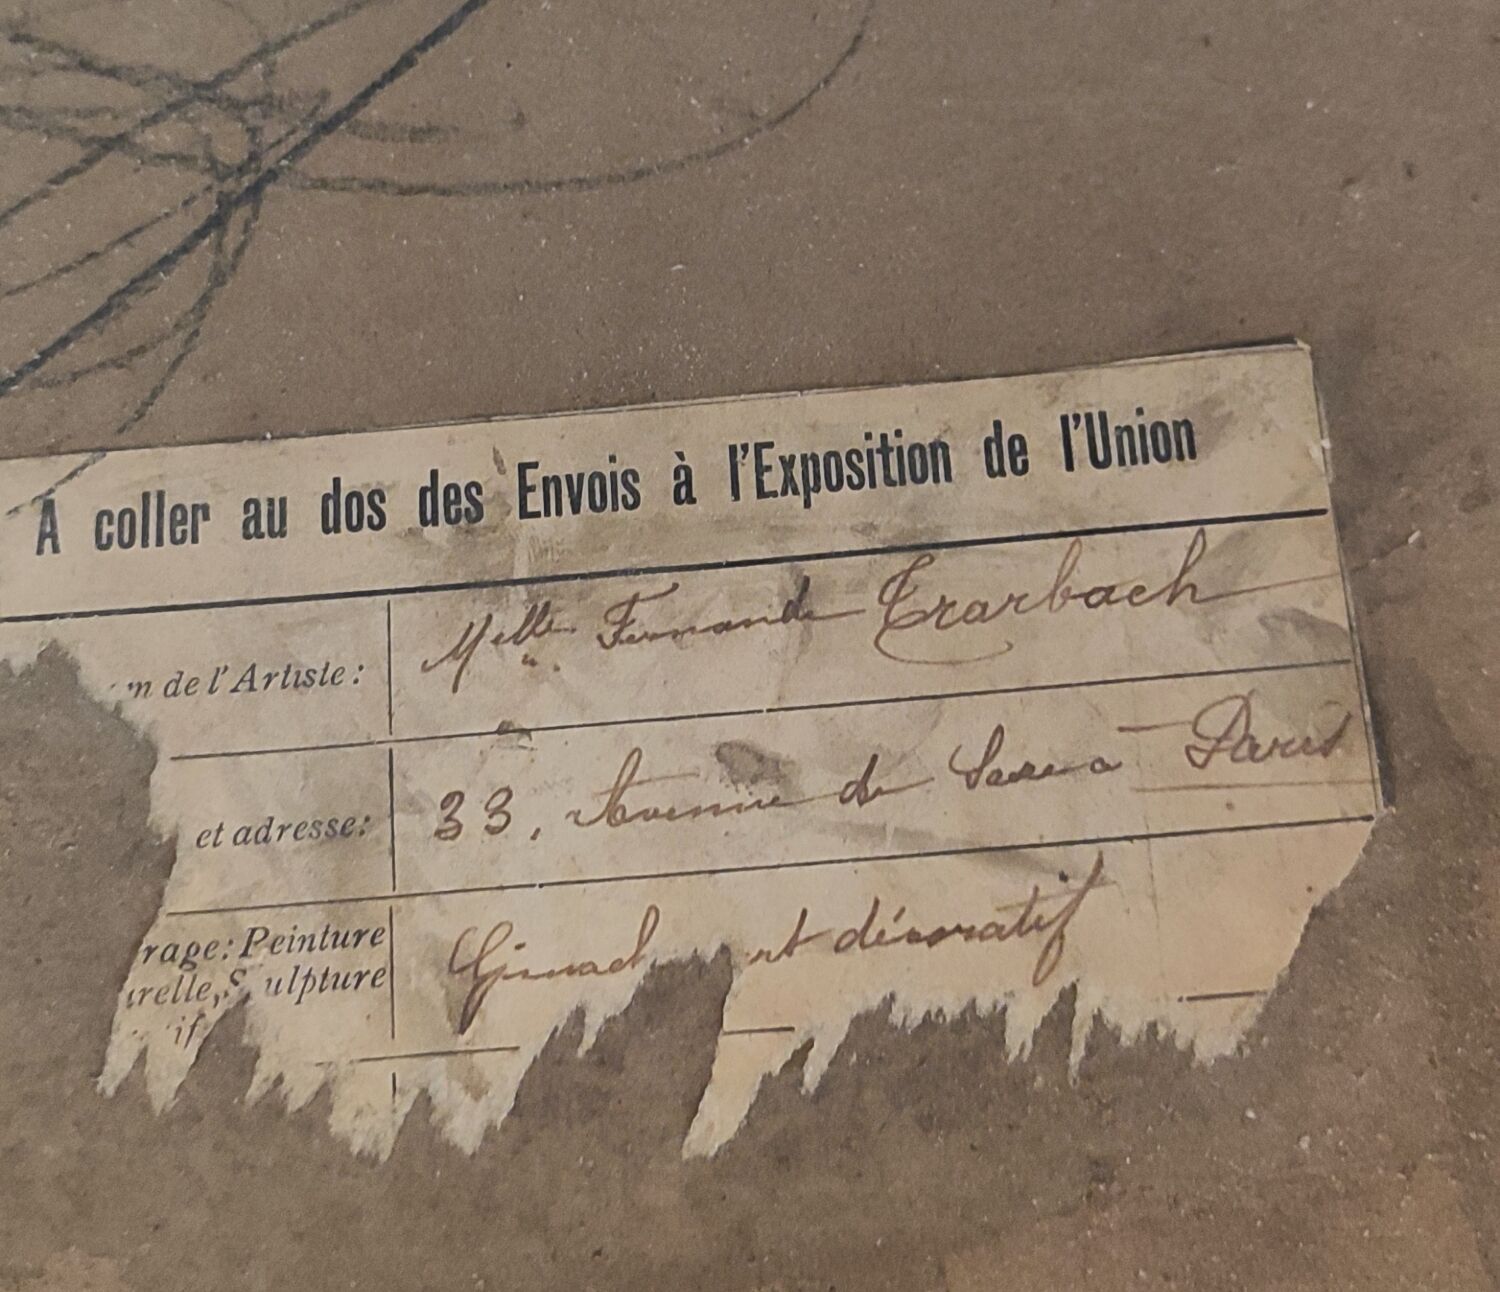 A coller au dos des Envois à l'Exposition de l'Union
m de l'Artiste: Melle Fernande Trarbach
et adresse: 33, Avenue de Saxe à Paris
rage: Peinture
relle, Sculpture
if
art décoratif